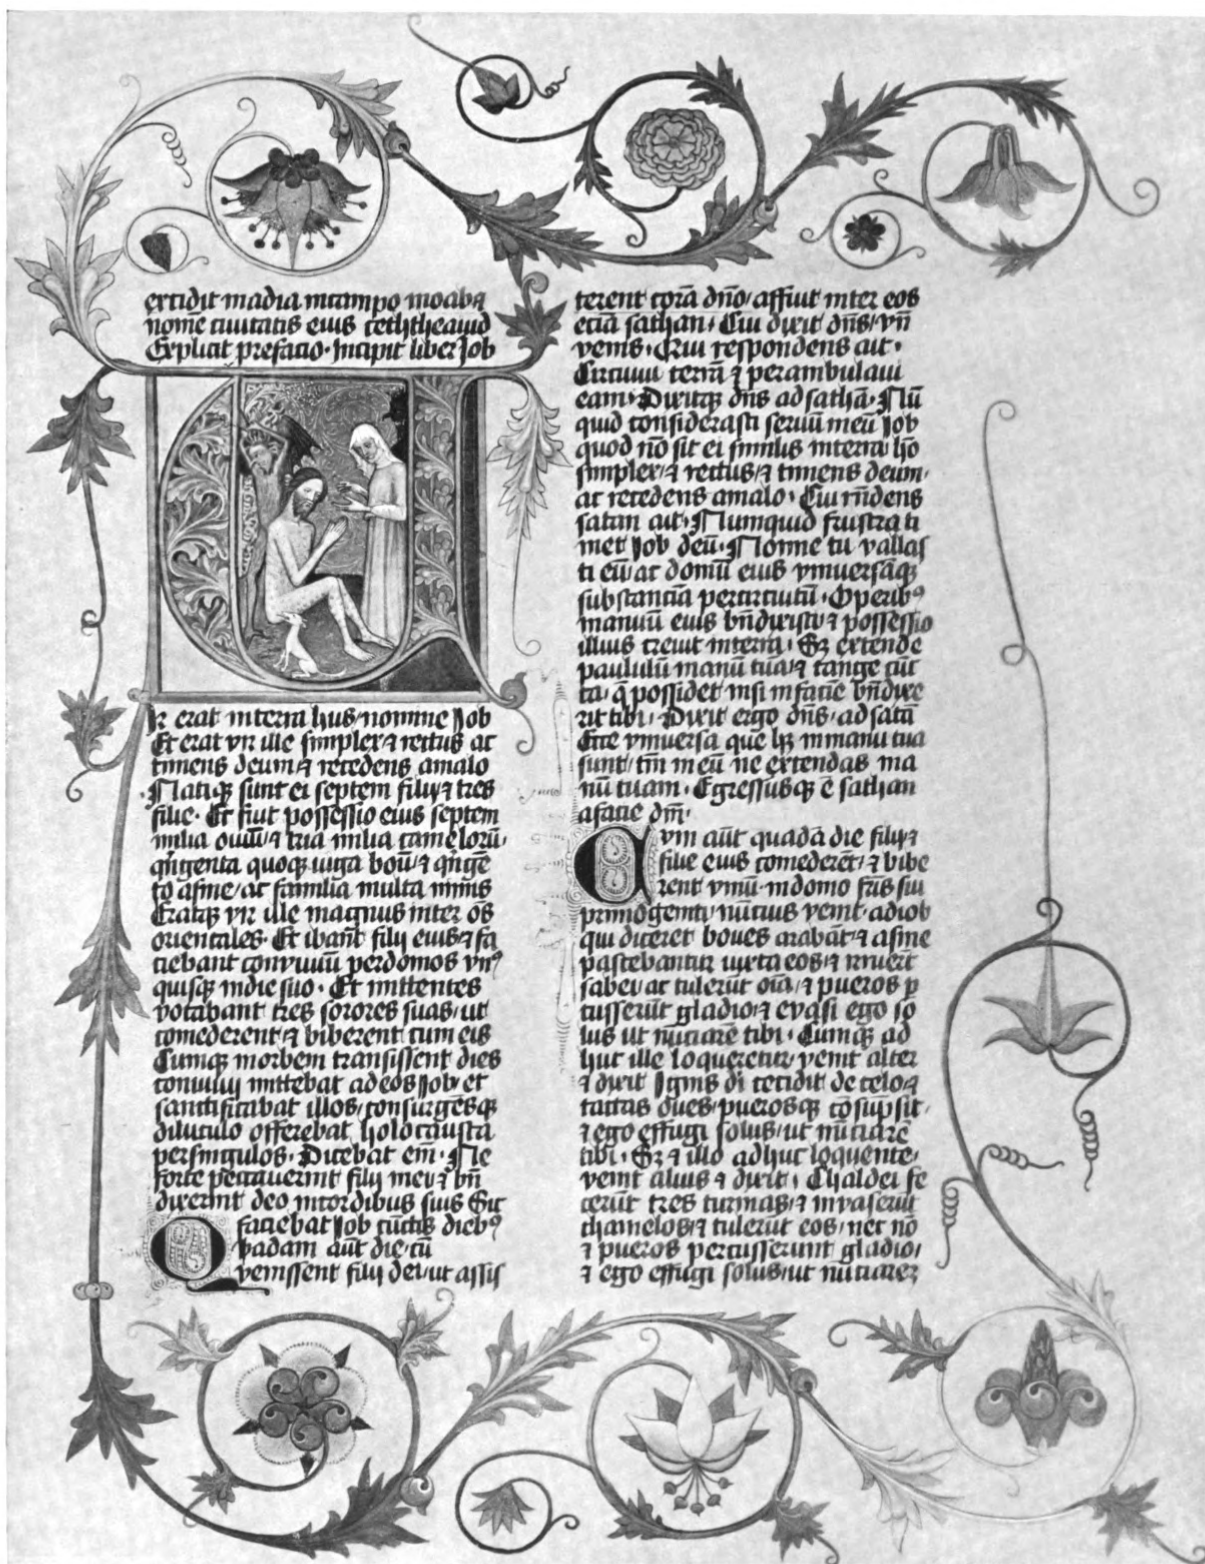 extidit madia incampo moab⁊
nomē civitatis eius ceththeavid
Explicit prefatio · Incipit liber Job
Ir erat interra hus / nomine Job
Et erat vir ille simplex ⁊ rectus ac
timens deum ⁊ recedens amalo
Natiqꝫ sunt ei septem filij ⁊ tres
filie · Et fuit possessio eius septem
milia ouiū ⁊ tria milia camelorū ·
qīngenta quoqꝫ iuga boū ⁊ qīngē
te asine / ac familia multa nimis
Eratqꝫ vir ille magnus inter oēs
orientales · Et ibant filij eius ⁊ fa
ciebant convivium perdomos vnꝰ
quisqꝫ indie suo · Et mittentes
vocabant tres sorores suas / ut
comederent ⁊ biberent cum eis
Cumqꝫ inorbem transissent dies
convivij mittebat ad eos Job / et
sanctificabat illos / consurgēsqꝫ
diluculo offerebat holocausta
persingulos · Dicebat em̄ · Ne
forte peccaverint filij mei ⁊ bn̄
dixerint deo incordibus suis Sic
faciebat Job cunctis diebꝰ
Quadam aūt die / cū
venissent filij dei / ut assis
terent corā dn̄o / affuit inter eos
eciā sathan · Cui dixit dn̄s / vn̄
venis · Qui respondens ait ·
Circuivi terrā ⁊ perambulavi
eam · Dixitqꝫ dn̄s ad sathā · Nū
quid considerasti servū meū Job
quod nō sit ei similis interra / hō
simplex / ⁊ rectus / ⁊ timens deum ·
ac recedens amalo · Cui rn̄dens
satan ait · Numquid frustra ti
met Job deū · Nonne tu vallas
ti eū / ac domū eius vniversāqꝫ
substanciā percircuitū · Operibꝰ
manuū eius bn̄dixisti / ⁊ possessio
illius crevit interra · Sꝫ extende
paululū manū tuā / ⁊ tange cūc
ta · q̄ possidet nisi infaciē bn̄dixe
rit tibi · Dixit ergo dn̄s / ad satā
Ecce vniversa que hꝫ inmanu tua
sunt / tm̄ in eū ne extendas ma
nū tuam · Egressusqꝫ ē sathan
afacie dn̄i ·
Cvm aūt quadā die filij ⁊
filie eius comederēt / ⁊ bibe
rent vinū · indomo fr̄is sui
primogeniti / nūcius venit · adiob
qui diceret boves arabāt / ⁊ asine
pascebantur iuxta eos / ⁊ irruerūt
sabei / ac tulerūt oīa / ⁊ pueros ꝑ
cusserūt gladio / ⁊ evasi ego so
lus ut nūciarē tibi · Cumqꝫ ad
huc ille loqueretur / venit alter
⁊ dixit Ignis di cecidit de celo / ⁊
tactas oves / puerosqꝫ cōsūpsit ·
⁊ ego effugi solus / ut nūciarē
tibi · Sꝫ ⁊ illo adhuc loquente /
venit alius ⁊ dixit · Chaldei fe
cerūt tres turmas / ⁊ invaserūt
chamelos / ⁊ tulerūt eos / nec nō
⁊ pueros percusserunt gladio /
⁊ ego effugi solus / ut nūciarē